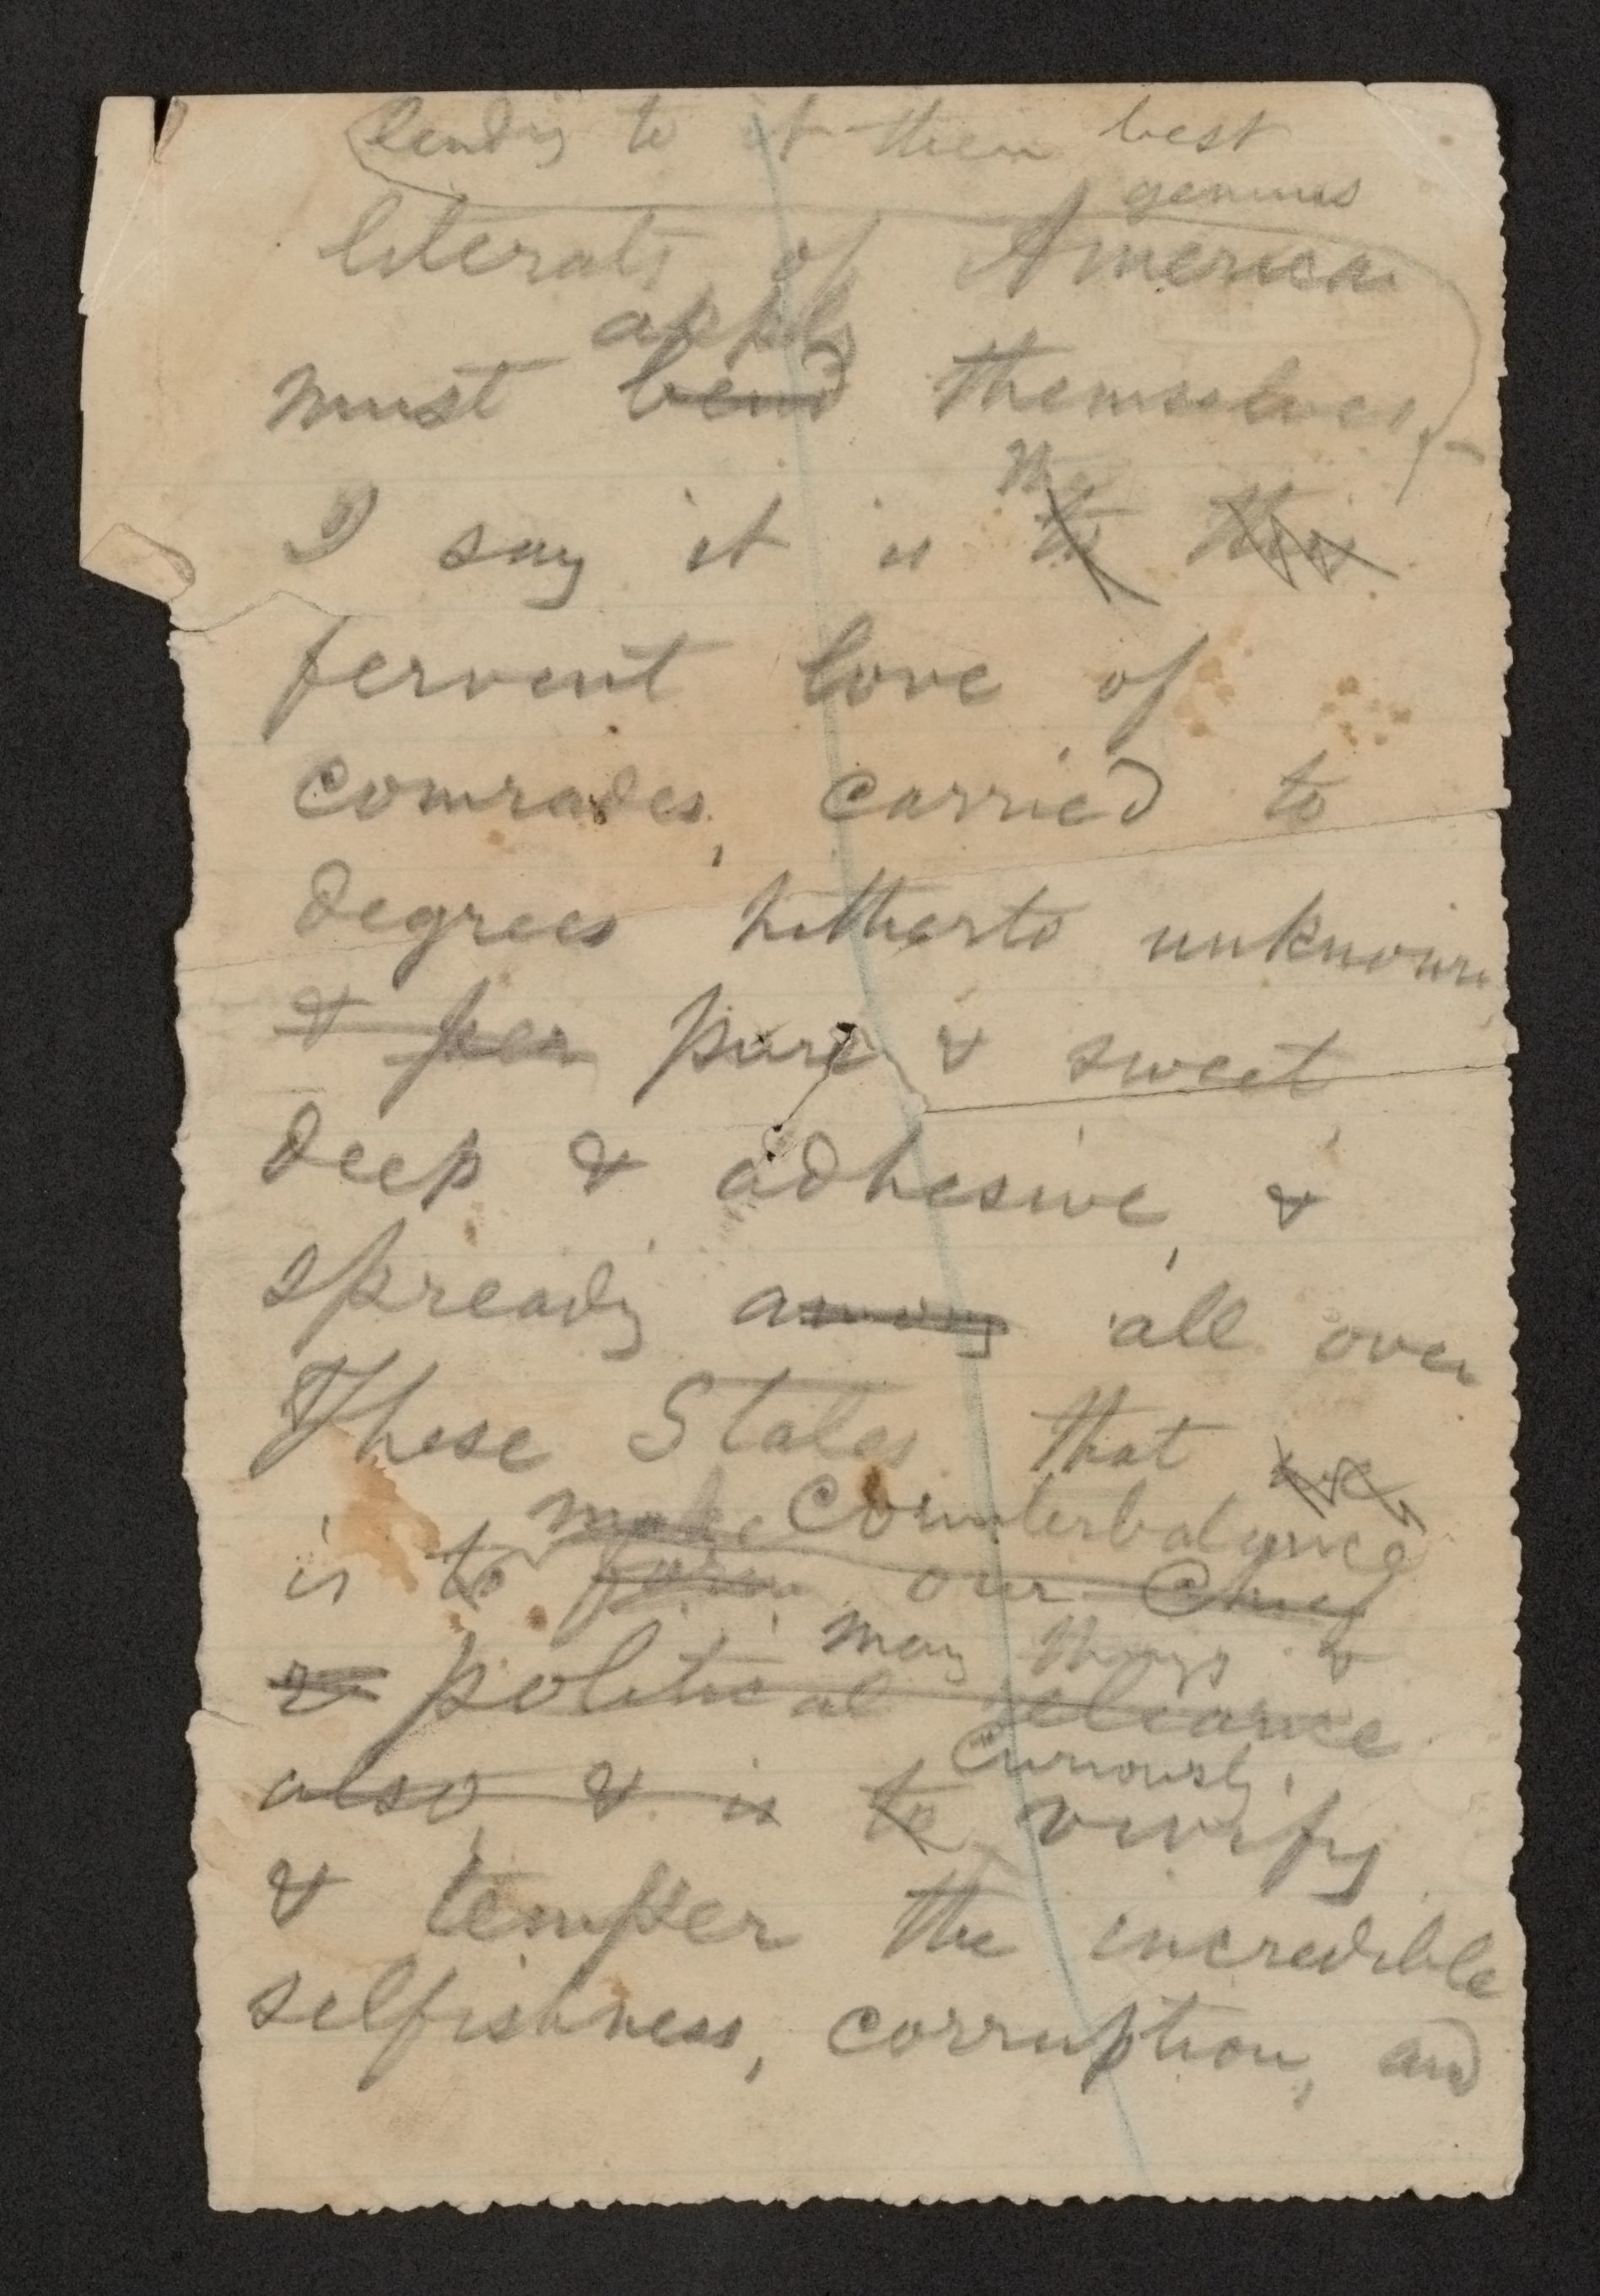 lending to it their best
genius
literats of America
apply
must bend themselves,
the
I say it is the this
fervent love of
comrades, carried to
degrees hitherto unknown,
& fer pure & sweet,
deep & adhesive, &
spreadig among all over
These States that
make counterbalance
is to form our chief
many things &
& political reliance
curiously
also, & is to vivify
& temper the incredible
selfishness, corruption, and